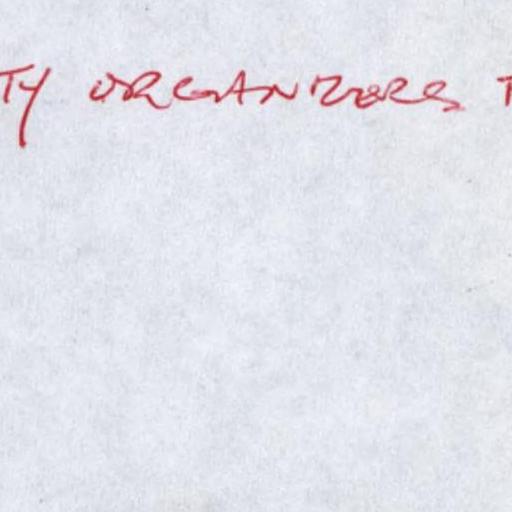 TY ORGANIZERS T